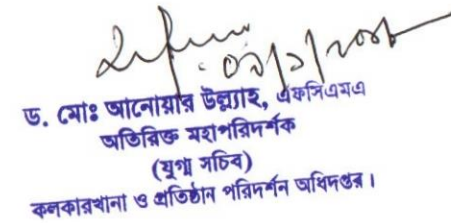 ড. মোঃ আনোয়ার উল্ল্যাহ, এফসিএমএ
অতিরিক্ত মহাপরিদর্শক
(যুগ্ম সচিব)
কলকারখানা ও প্রতিষ্ঠান পরিদর্শন অধিদপ্তর।